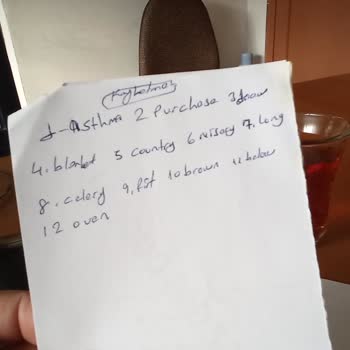 1- Asthma 2 Purchase 3 draw
4. blanket 5 country 6 7. long
8. celery 9. fist 10 brown 11 below
12 oven